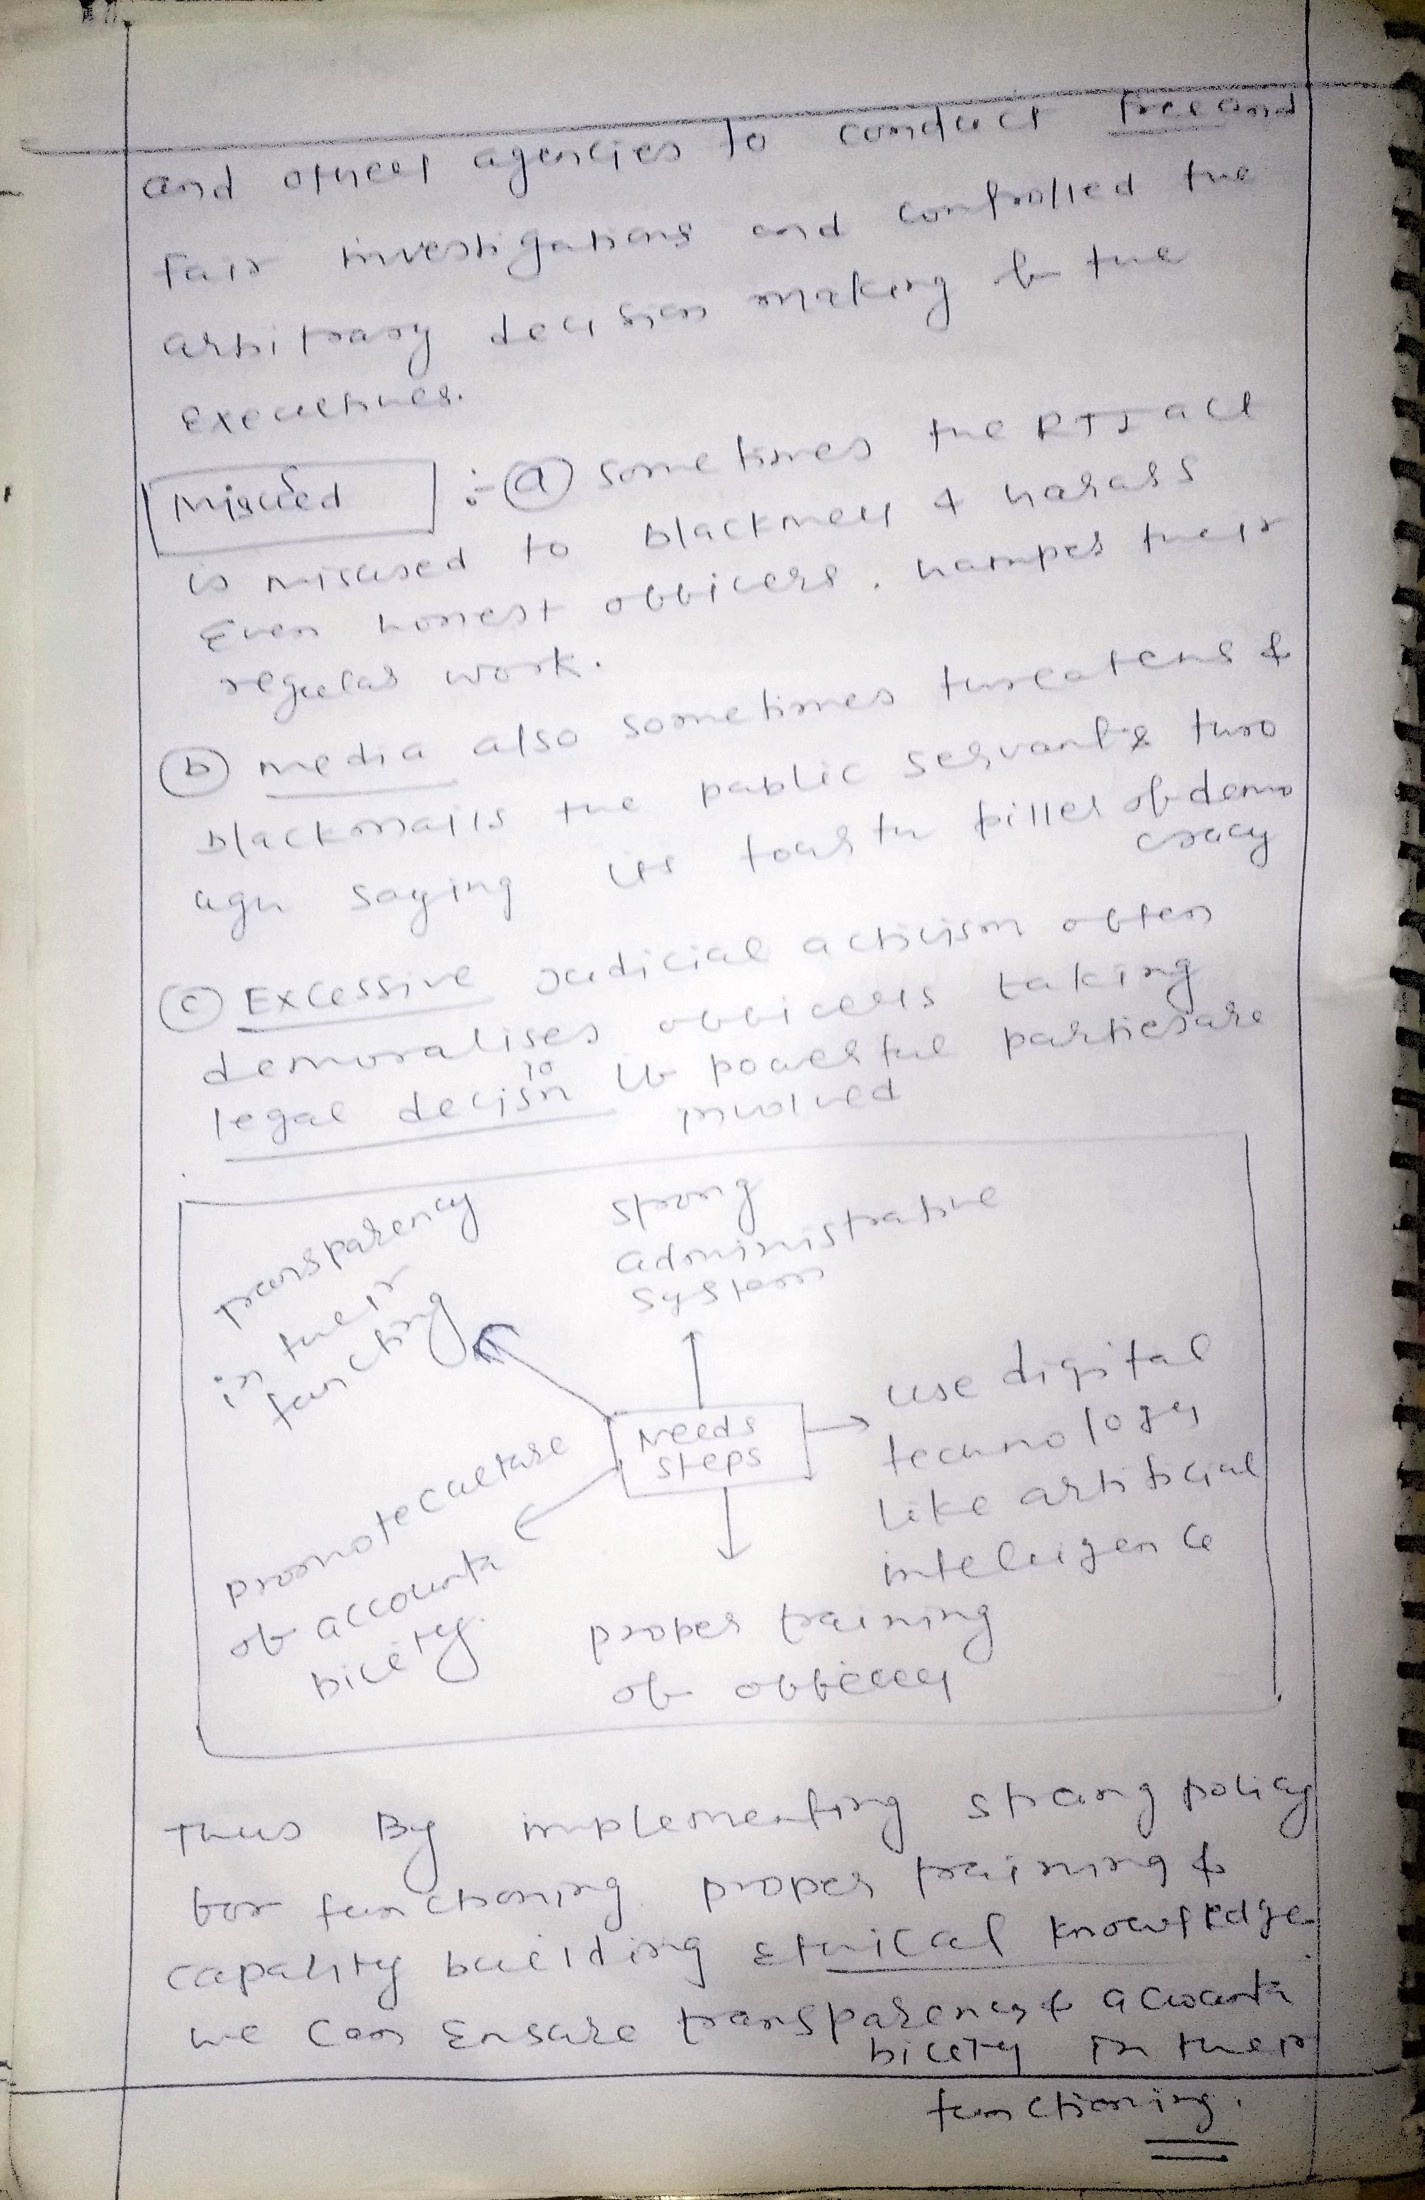 and other agencies to conduct free and
fair investigations and controlled the
arbitrary decision making by the
executives.
Misused :- (a) Sometimes the RTI act
is misused to blackmail & harass
Even honest officers. hampes their
regular work.
(b) media also sometimes threatens &
blackmails the public servants thro
ugh saying its fourth piller of demo
cracy
(c) Excessive Judicial activism often
demoralises officers taking
legal decision if powerful parties are
involved
Transparency
in their
functing
Strong
administrative
System
Needs
steps
use digital
technology
like artificial
intelligence
promote culture
of accounta
bility.
proper training
of officer
Thus By implementing strong policy
for functioning proper training &
capality building ethical knowledge
we can Ensure transparency & accounta
bility in their
functioning.